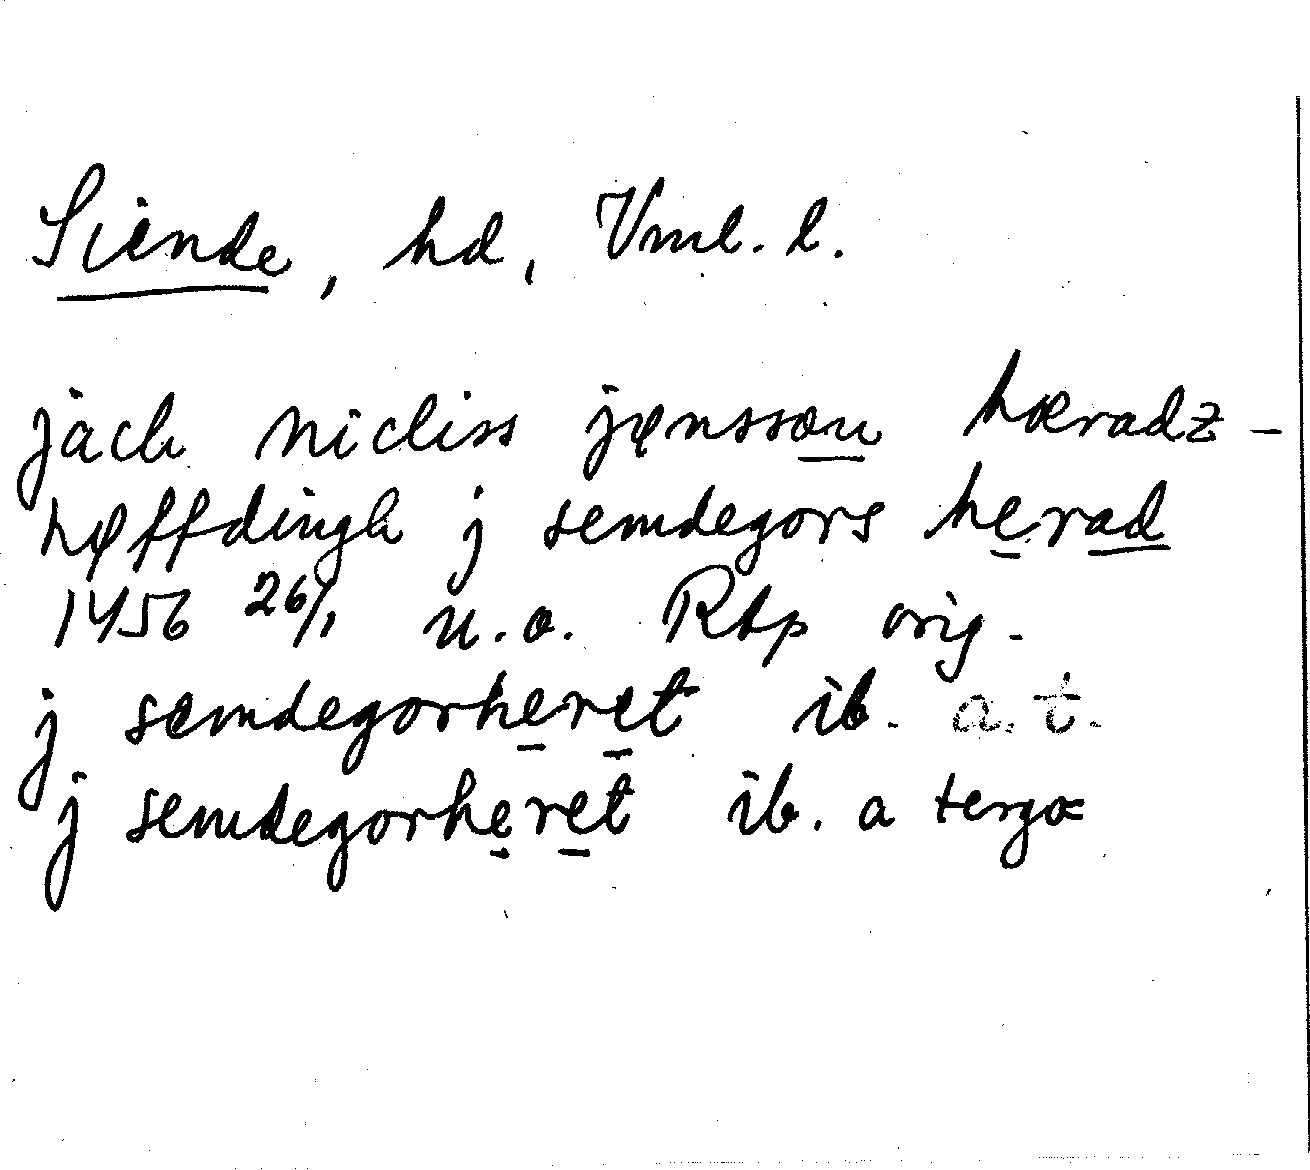 Siende, hd, Vml. l.
jach nicliss jønsson hæradz-
høffdingh j semdegors herad
1456 26/1 u.o. Rbp orig.
j semdegorheret ib. a.t.
j semdegorheret ib. a tergo